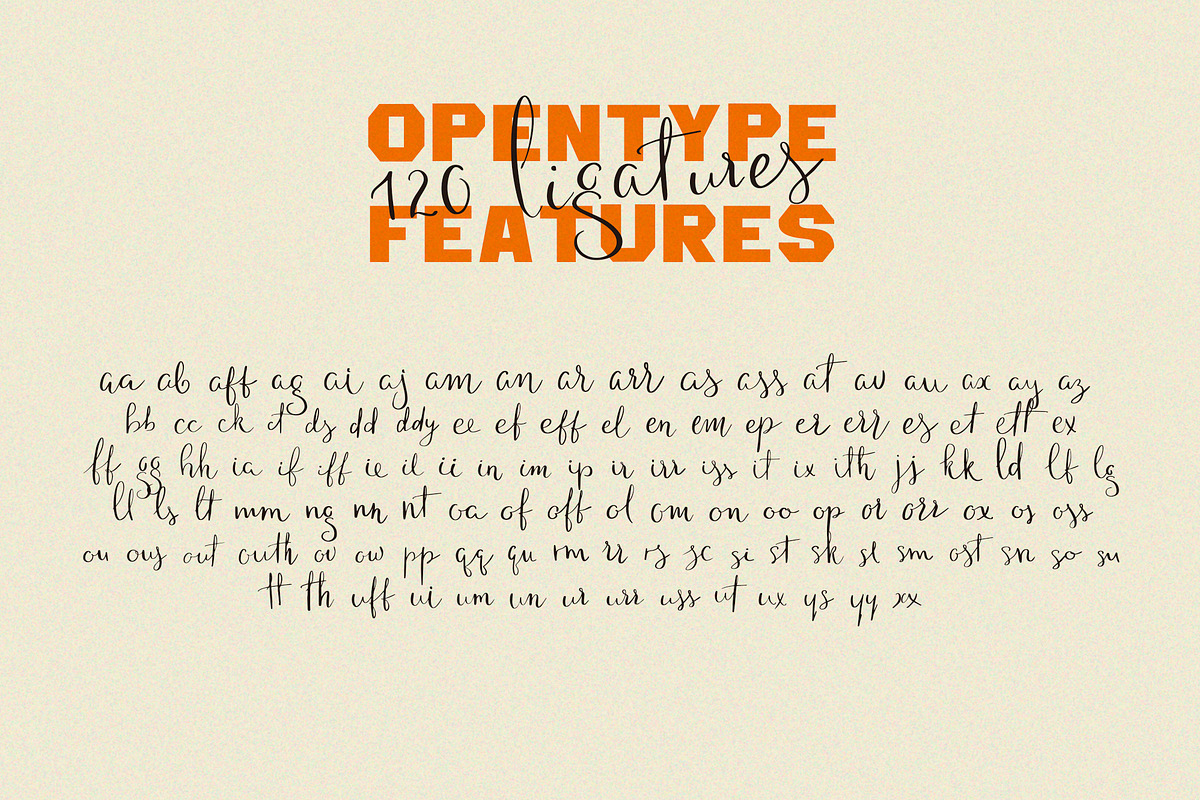 OPENTYPE
120 ligatures
FEATURES
aa ab aff ag ai aj am an ar arr as ass at av au ax ay az
bb cc ck ct ds dd ddy ee ef eff el en em ep er err es et ett ex
ff gg hh ia if iff ie il ii in im ip ir irr iss it ix ith jj kk ld lf lg
ll ls lt mm ng nn nt oa of off ol om on oo op or orr ox os oss
ou ous out outh ov ow pp qq qu rm rr rs sc si st sk sl sm ost sn so su
tt th uff ui um un ur urr uss ut ux ys yy xx